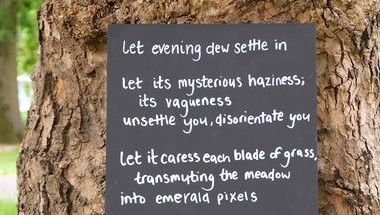 Let evening dew settle in
Let its mysterious haziness;
its vagueness
unsettle you, disorientate you
Let it caress each blade of grass,
transmuting the meadow
into emerald pixels